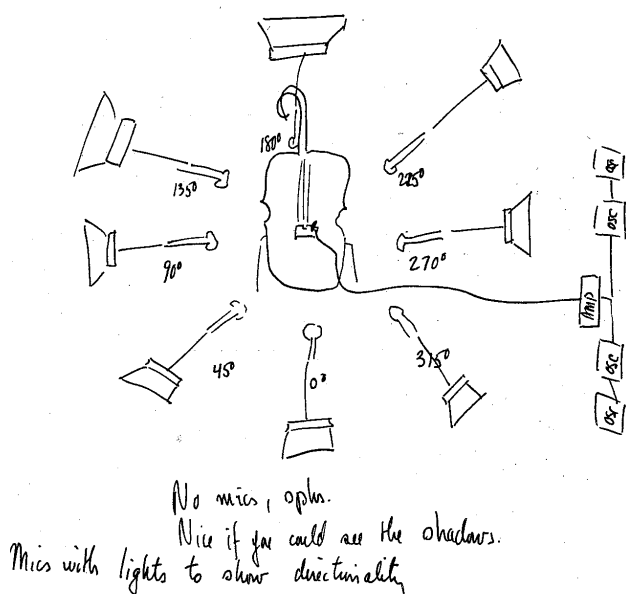 180°
135°
225°
90°
270°
45°
0°
315°
OSC
AMP
OSC
OSC
No mics,
Nice if you could see the shadows.
Mics with lights to show directionality